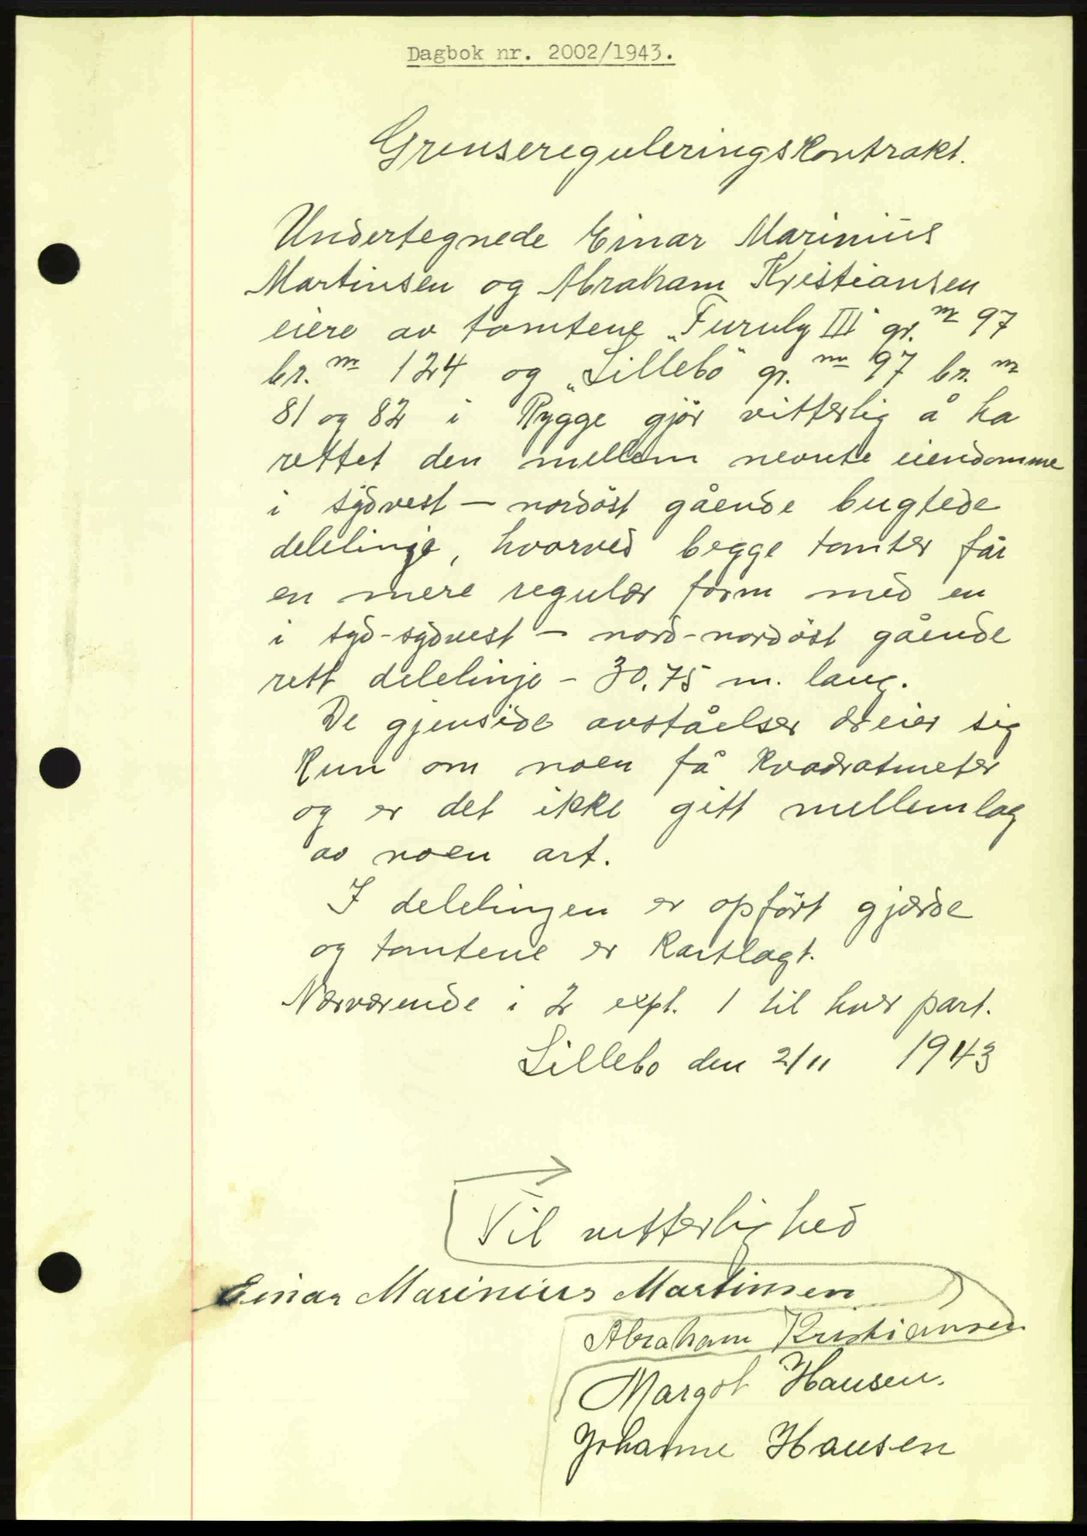 Dagbok nr. 2002/1943.
Grensereguleringskontrakt.
Undertegnede Einar Marinius
Martinsen og Abraham Kristiansen
eiere av tomtene „Furuly III" gr. nr 97
br. nr 124 og „Lillebo" gr. nr 97 br. nr
81 og 82 i Rygge gjør vitterlig å ha
rettet den mellem nevnte eiendomme
i sydvest – nordøst gående bugtede
delelinje, hvorved begge tomter får
en mere regulær form med en
i syd-sydvest – nord-nordøst gående
rett delelinje – 30.75 m. lang.
De gjenside avståelser dreier sig
kun om noen få kvadratmeter
og er det ikke gitt mellemlag
av noen art.
I delelinjen er opført gjærde
og tomtene er kartlagt.
Nærværende i 2 expl. 1 til hver part.
Lillebo den 2/11 1943
Til vitterlighed
Einar Marinius Martinsen
Abraham Kristiansen
Margot Hansen.
Johanne Hansen